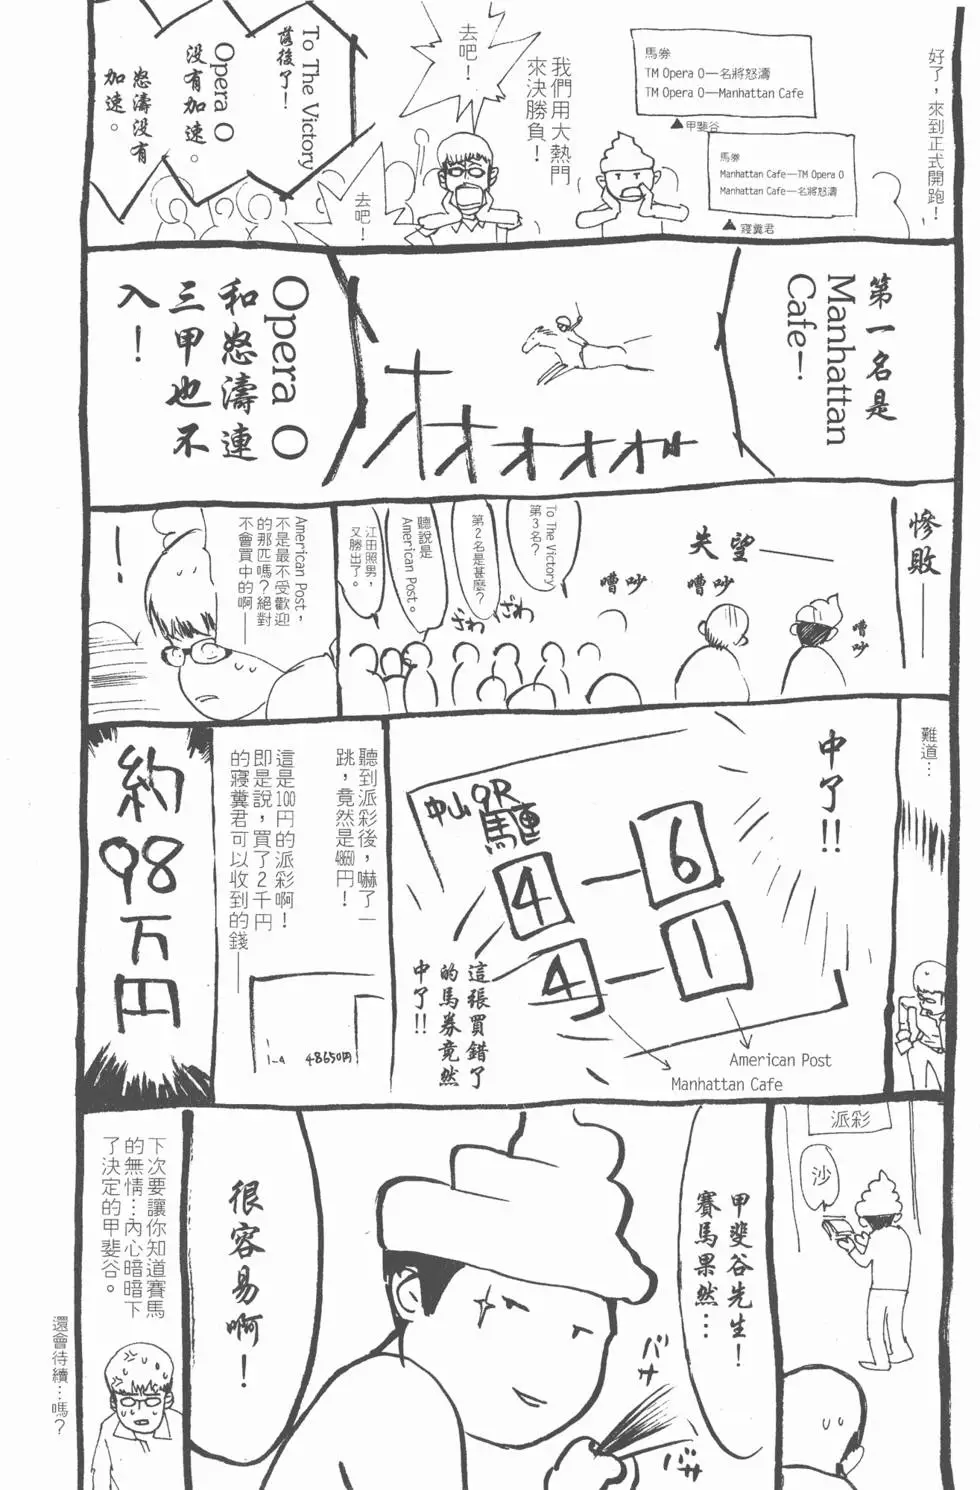 好了，來到正式開跑！
馬券
TM Opera O—名將怒濤
TM Opera O—Manhattan Cafe
▲甲斐谷
馬券
Manhattan Cafe—TM Opera O
Manhattan Cafe—名將怒濤
▲寢糞君
我們用大熱門
來決勝負！
去吧！
去吧！
To The Victory
落後了！
Opera O
沒有加速。
怒濤沒有
加速。
第一名是
Manhattan
Cafe—！
オオオオオオ
Opera O
和怒濤連
三甲也不
入！
慘敗——
失望——
嘈吵
嘈吵
嘈吵
To The Victory
第3名？
第2名是甚麼？
聽說是
American Post。
江田照男，
又勝出了。
ざわ
ざわ
American Post，
不是最不受歡迎
的那匹嗎？絕對
不會買中的啊——
！
難道…
中了!!
中山9R
馬連
4—6
4—1
American Post
Manhattan Cafe
這張買錯了
的馬券竟然
中了!!
聽到派彩後，嚇了一
跳，竟然是48660円！
這是100円的派彩啊！
即是說，買了2千円
的寢糞君可以收到的錢——
1-4 48650円
約98万円
派彩
沙
甲斐谷先生！
賽馬果然…
很容易啊！
バサ
バサ
下次要讓你知道賽馬
的無情…內心暗暗下
了決定的甲斐谷。
還會待續…嗎？